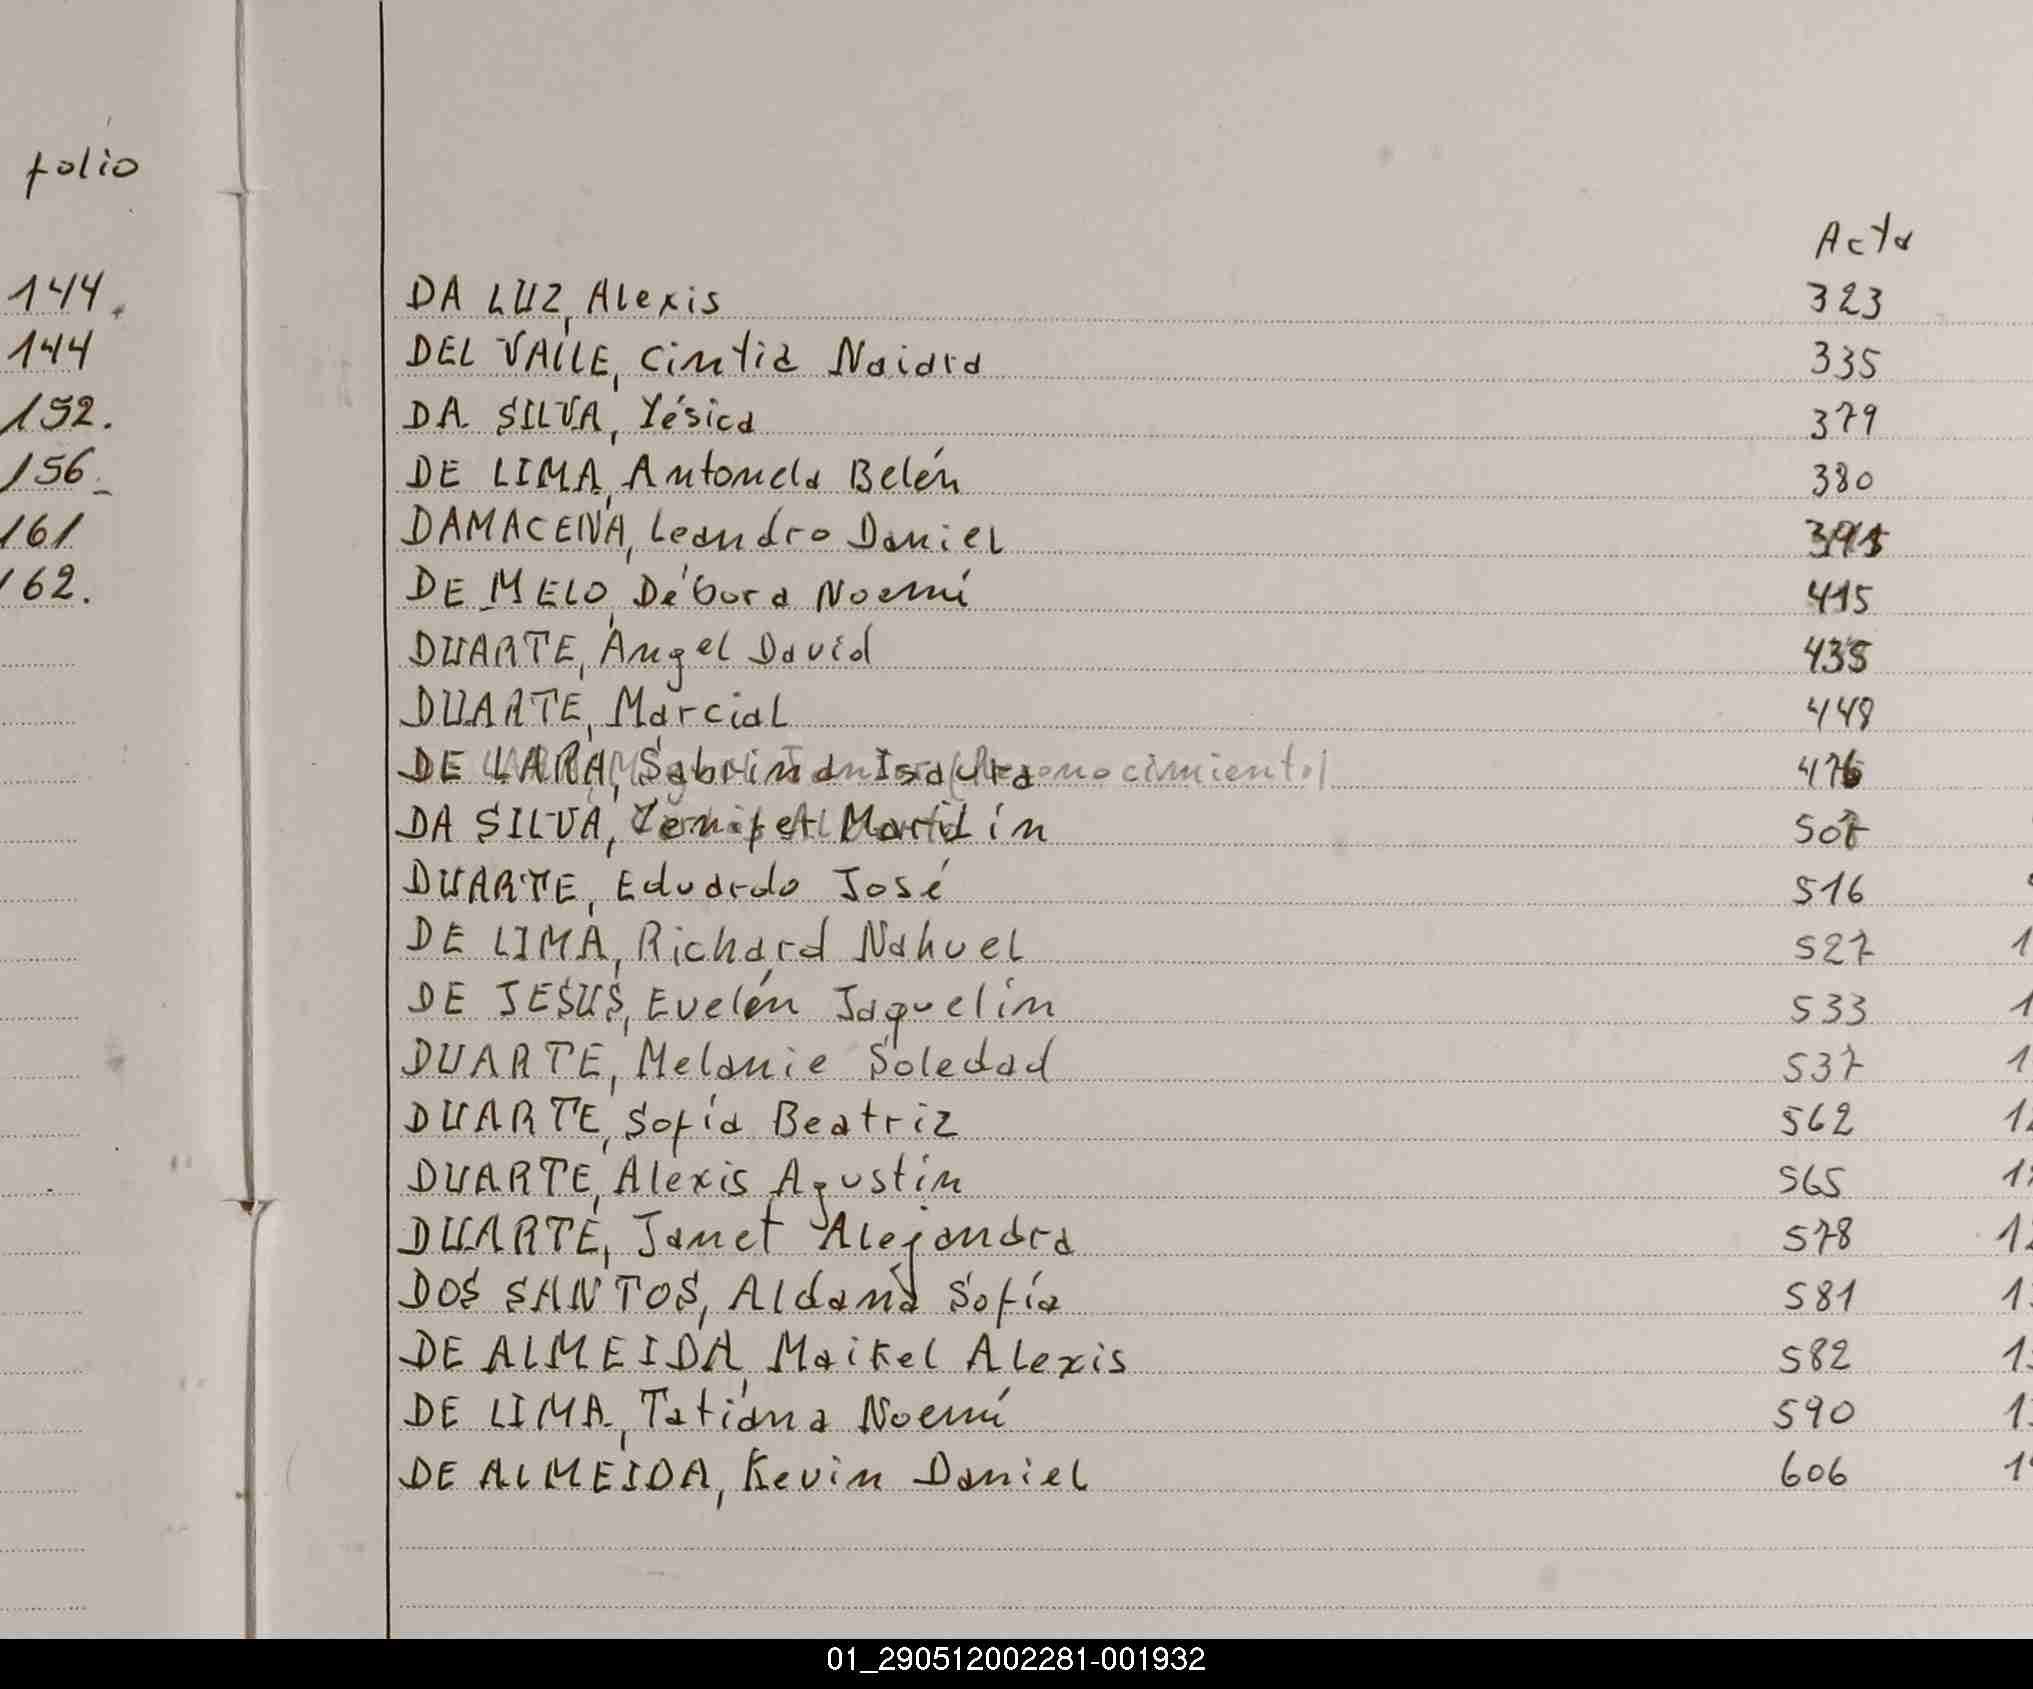 folio
144.
144
152.
156.
161
162.
Acta
DA LUZ, Alexis 323
DEL VALLE, Cintia Naiara 335
DA SILVA, Yésica 379
DE LIMA, Antonela Belén 380
DAMACENA, Leandro Daniel
DE MELO, Débora Noemí 415
DUARTE, Ángel David 435
DUARTE, Marcial 448
DE LARA, Sabrina Isaura 476
DA SILVA, Yenifer Marilín 507
DUARTE, Eduardo José 516
DE LIMA, Richard Nahuel 527
DE JESUS, Evelén Jaquelín 533
DUARTE, Melanie Soledad 537
DUARTE, Sofía Beatriz 562
DUARTE, Alexis Agustín 565
DUARTE, Janet Alejandra 578
DOS SANTOS, Aldana Sofía 581
DE ALMEIDA, Maikel Alexis 582
DE LIMA, Tatiana Noemí 590
DE ALMEIDA, Kevin Daniel 606
01_290512002281-001932